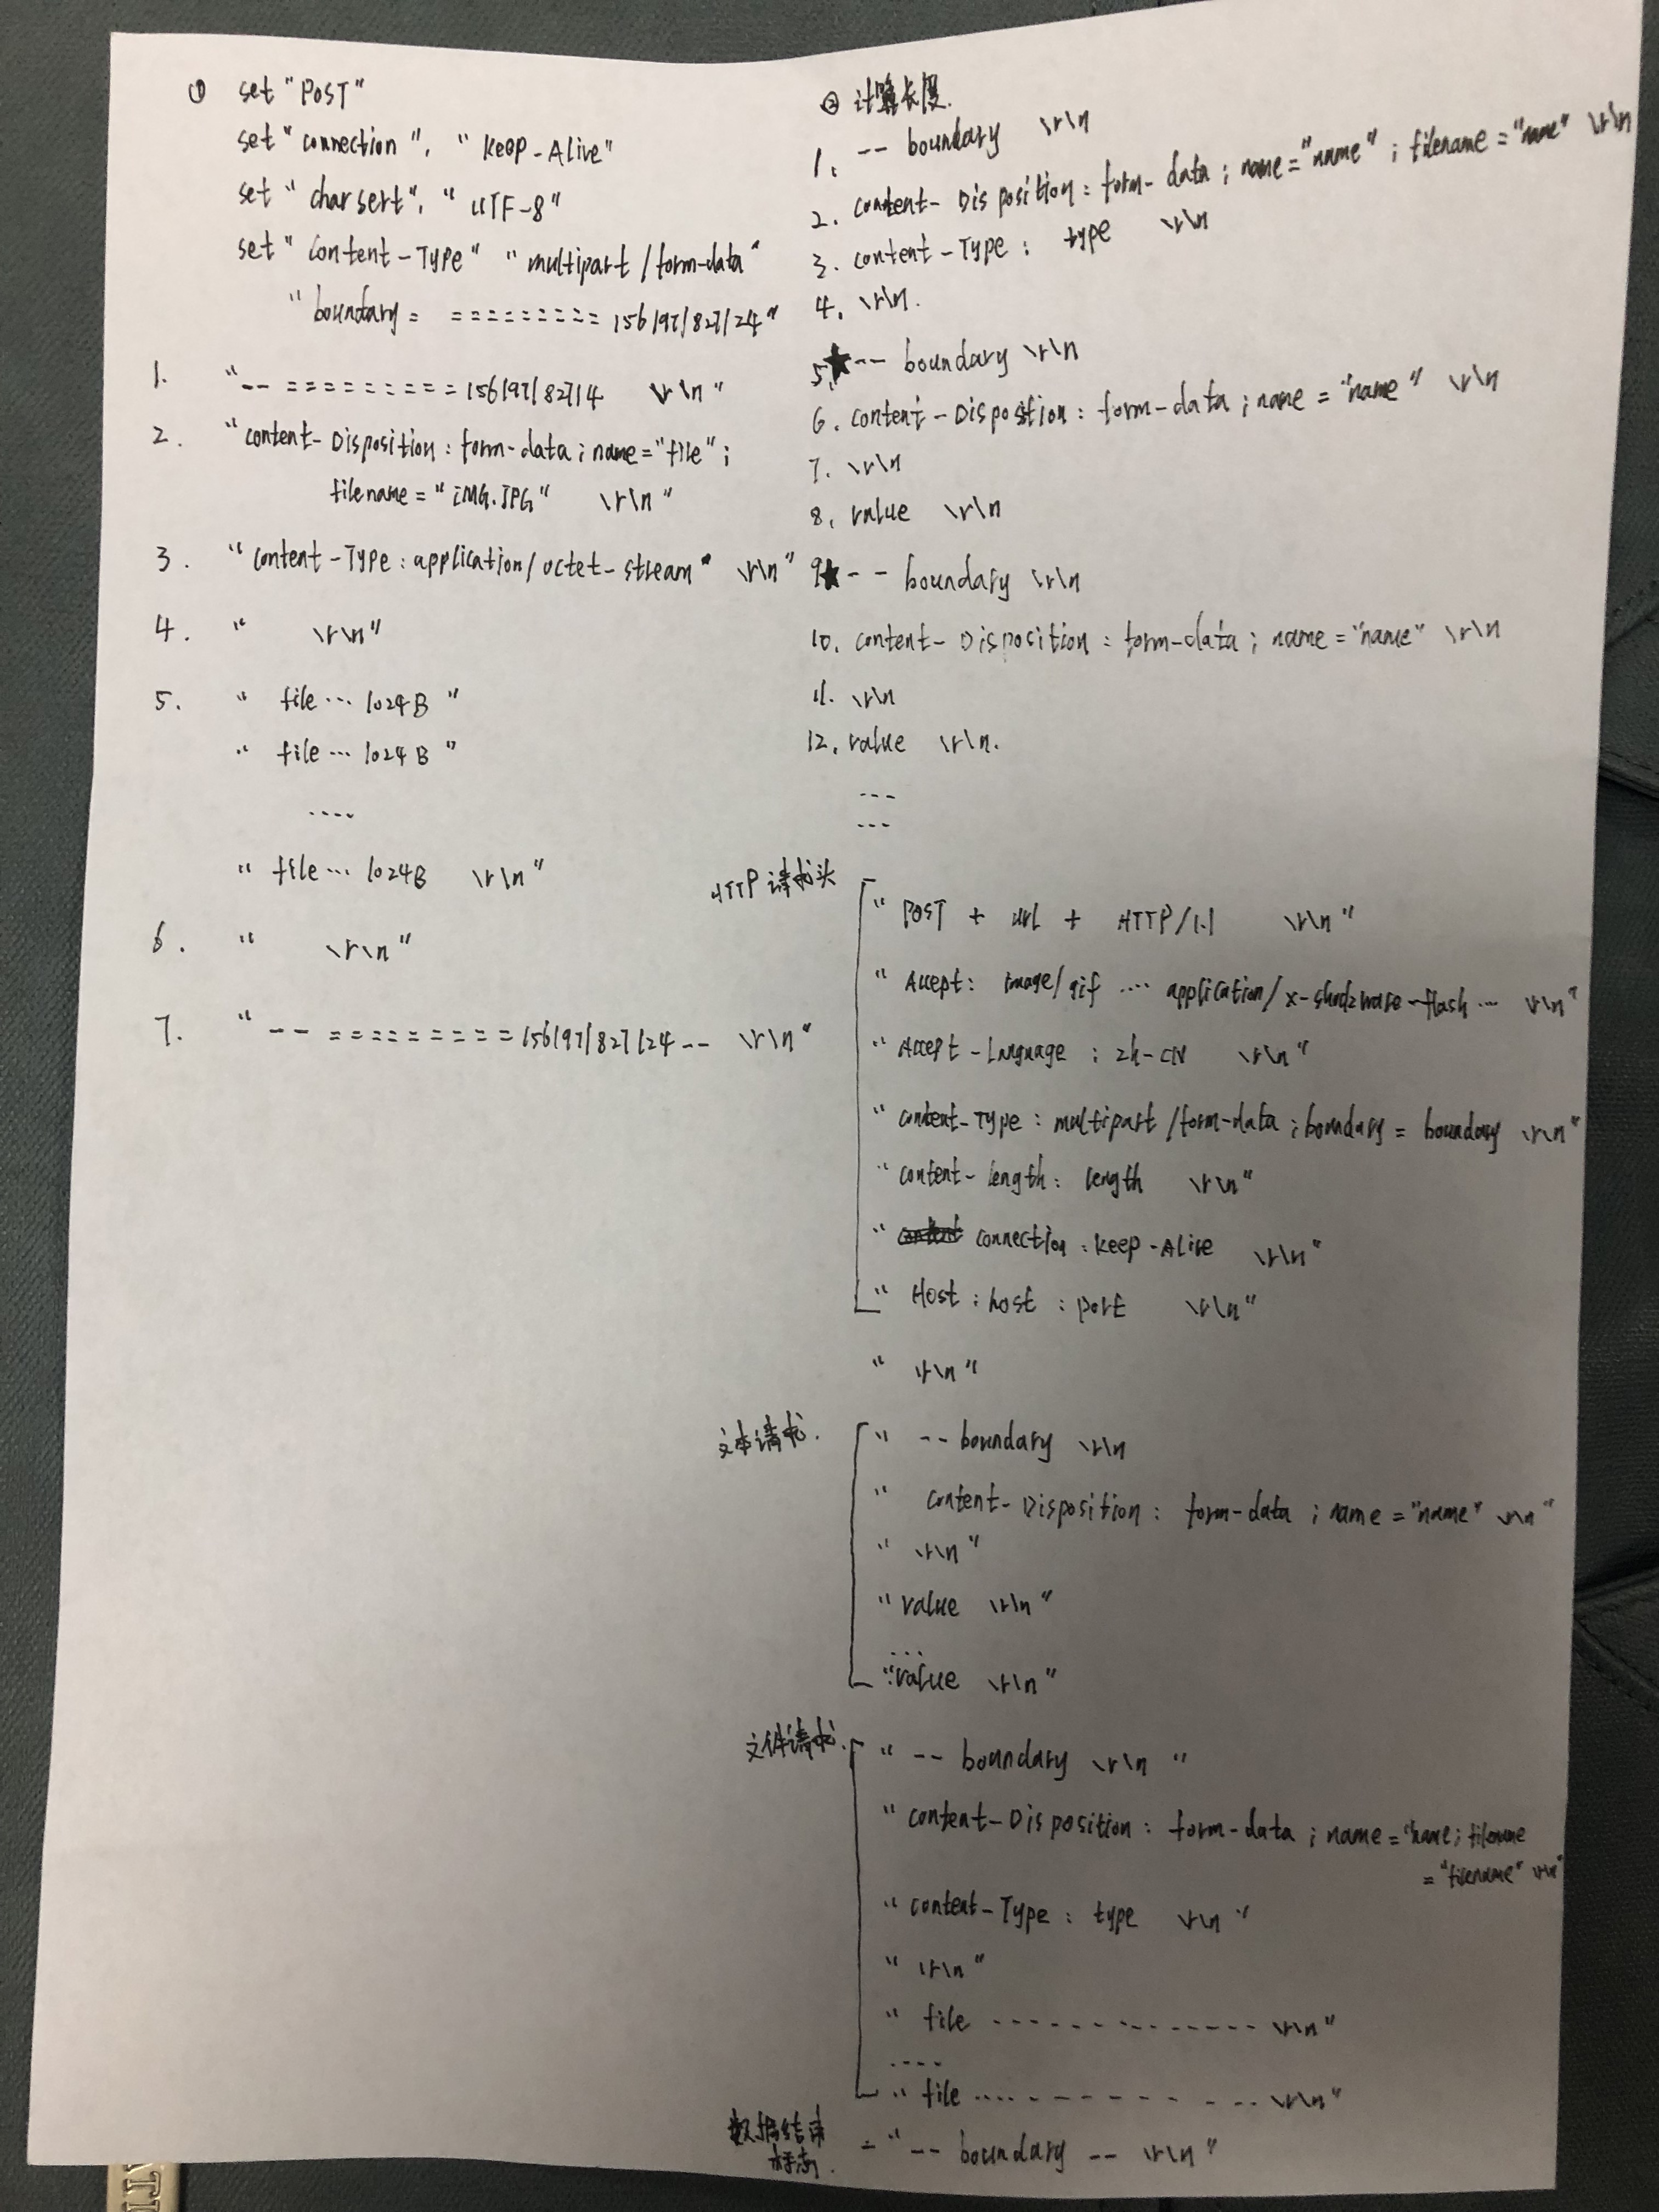 ① set "POST"
set "connection", "Keep-Alive"
set "charsert", "UTF-8"
set "content-Type" "multipart/form-data"
"boundary= ========= 1561971827124"
1. "-- ========= 15619718214 \r\n"
2. "content-Disposition: form-data; name="file";
filename="IMG.JPG" \r\n"
3. "content-Type: application/octet-stream" \r\n"
4. " \r\n"
5. " file ... 1024B "
" file ... 1024B "
....
" file ... 1024B \r\n"
6. " \r\n"
7. " -- ========= 1561971827124 -- \r\n"
② 计算长度.
1. -- boundary \r\n
2. content-Disposition: form-data; name="name"; filename="name" \r\n
3. content-Type: type \r\n
4. \r\n.
5.★-- boundary \r\n
6. content-Disposition: form-data; name="name" \r\n
7. \r\n
8. value \r\n
9★-- boundary \r\n
10. content-Disposition: form-data; name="name" \r\n
11. \r\n
12. value \r\n.
---
---
HTTP请求头
" POST + url + HTTP/1.1 \r\n"
" Accept: image/gif .... application/x-shockwave-flash ... \r\n"
" Accept-Language: zh-CN \r\n"
" content-Type: multipart/form-data; boundary= boundary \r\n"
" content-length: length \r\n"
" connection: Keep-Alive \r\n"
" Host: host: port \r\n"
" \r\n"
文本请求.
" -- boundary \r\n
" content-Disposition: form-data; name="name" \r\n"
" \r\n"
" value \r\n"
...
" value \r\n"
文件请求.
" -- boundary \r\n "
" content-Disposition: form-data; name="name; filename
="filename" \r\n"
" content-Type: type \r\n"
" \r\n"
" file -------------- \r\n"
....
" file .... -------- \r\n"
数据结束
标志.
- " -- boundary -- \r\n"